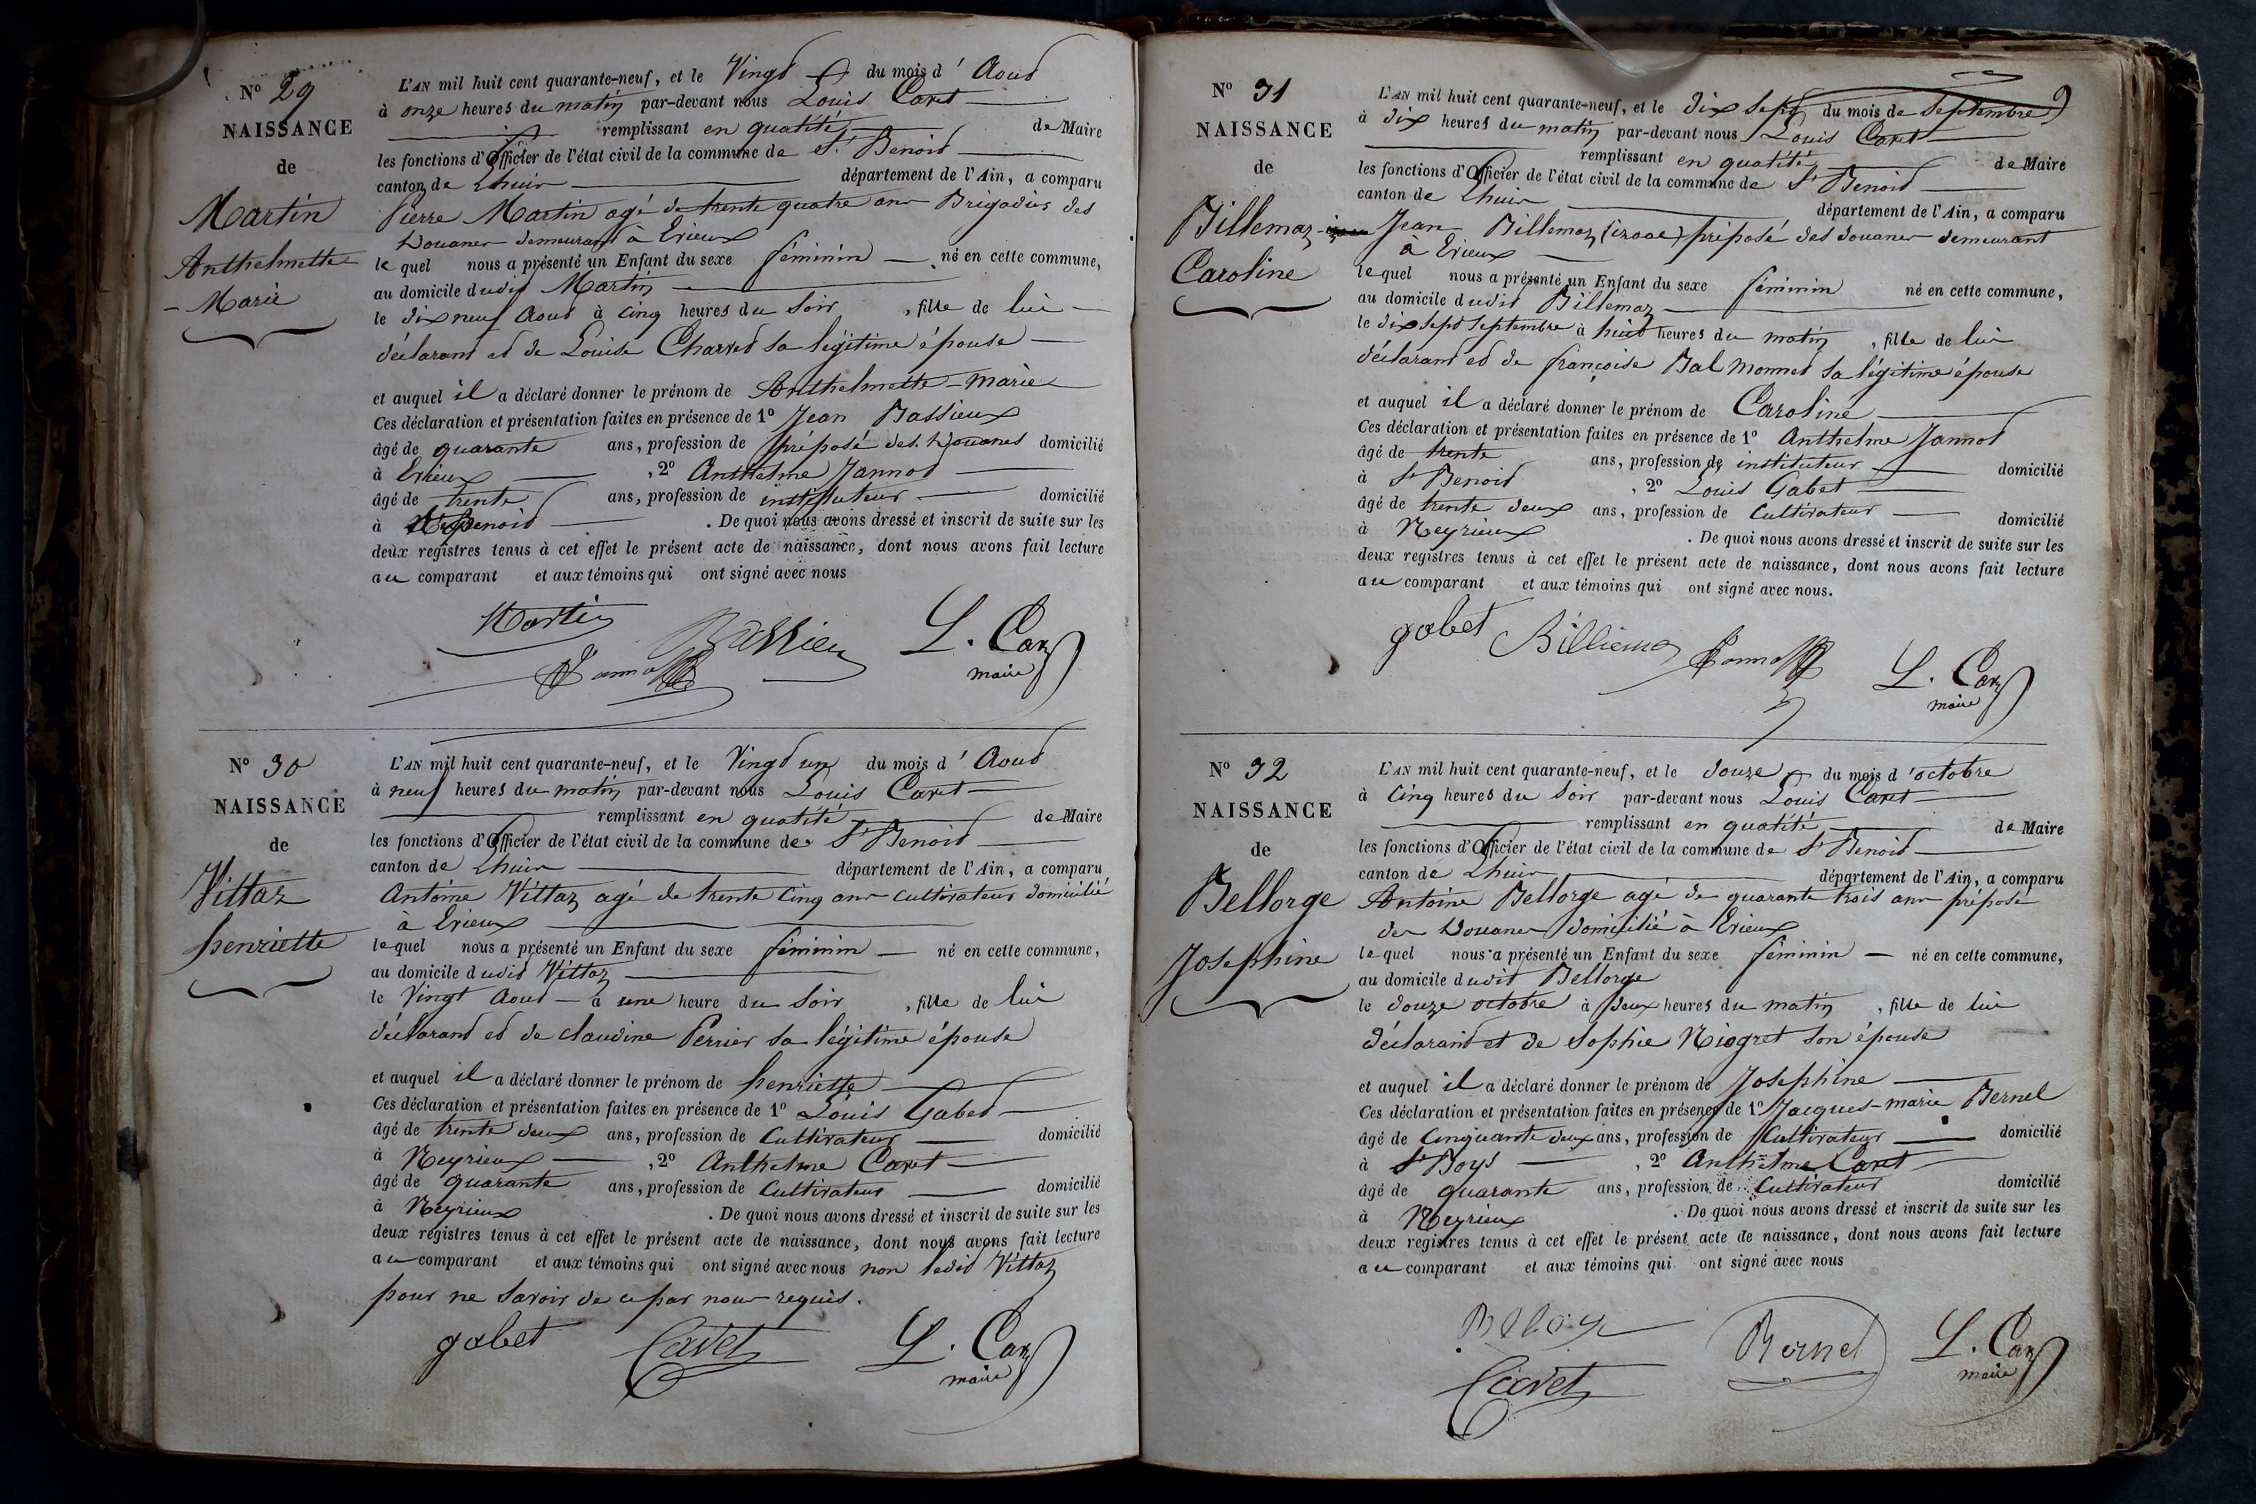 N° 29
NAISSANCE
de
Martin
Anthelmette
- Marie
L'AN mil huit cent quarante-neuf, et le Vingt du mois d'Aout
à onze heures du matin par-devant nous Louis Cavet
remplissant en qualité de Maire
les fonctions d'Officier de l'état civil de la commune de St Benoit
canton de Lhuis département de l'Ain, a comparu
Pierre Martin agé de trente quatre ans Brigadier des
Douanes demeurant à Evieux
le quel nous a présenté un Enfant du sexe féminin né en cette commune,
au domicile dudit Martin
le dix neuf Aout à cinq heures du soir, fille de lui
déclarant et de Louise Charvet sa légitime épouse
et auquel il a déclaré donner le prénom de Anthelmette - Marie
Ces déclaration et présentation faites en présence de 1° Jean Bassieux
âgé de quarante ans, profession de préposé des Douanes domicilié
à Evieux, 2° Anthelme Jannot
âgé de trente ans, profession de instituteur domicilié
à St Benoit. De quoi nous avons dressé et inscrit de suite sur les
deux registres tenus à cet effet le présent acte de naissance, dont nous avons fait lecture
au comparant et aux témoins qui ont signé avec nous
Martin Bassieu L. Cavet
Jannot maire
N° 30
NAISSANCE
de
Vittaz
henriette
L'AN mil huit cent quarante-neuf, et le Vingt un du mois d'Aout
à neuf heures du matin par-devant nous Louis Cavet
remplissant en qualité de Maire
les fonctions d'Officier de l'état civil de la commune de St Benoit
canton de Lhuis département de l'Ain, a comparu
Antoine Vittaz agé de trente cinq ans cultivateur domicilié
à Evieux
le quel nous a présenté un Enfant du sexe féminin né en cette commune,
au domicile dudit Vittaz
le Vingt Aout à une heure du soir, fille de lui
déclarant et de claudine Perrier sa légitime épouse
et auquel il a déclaré donner le prénom de henriette
Ces déclaration et présentation faites en présence de 1° Louis Gabet
âgé de trente deux ans, profession de Cultivateur domicilié
à Neyrieux, 2° Anthelme Cavet
âgé de quarante ans, profession de Cultivateur domicilié
à Neyrieux. De quoi nous avons dressé et inscrit de suite sur les
deux registres tenus à cet effet le présent acte de naissance, dont nous avons fait lecture
au comparant et aux témoins qui ont signé avec nous non ledit Vittaz
pour ne savoir de ce par nous requis.
gabet Cavet L. Cavet
maire
N° 31
NAISSANCE
de
Billemaz
Caroline
L'AN mil huit cent quarante-neuf, et le dix sept du mois de Septembre
à dix heures du matin par-devant nous Louis Cavet
remplissant en qualité de Maire
les fonctions d'Officier de l'état civil de la commune de St Benoit
canton de Lhuis département de l'Ain, a comparu
Jean Billemaz préposé des douanes demeurant
à Evieux
lequel nous a présenté un Enfant du sexe féminin né en cette commune,
au domicile dudit Billemaz
le dix sept septembre à huit heures du matin, fille de lui
déclarant et de françoise Bal Monnet sa légitime épouse
et auquel il a déclaré donner le prénom de Caroline
Ces déclaration et présentation faites en présence de 1° Anthelme Jannot
âgé de trente ans, profession de instituteur domicilié
à St Benoit, 2° Louis Gabet
âgé de trente deux ans, profession de Cultivateur domicilié
à Neyrieux. De quoi nous avons dressé et inscrit de suite sur les
deux registres tenus à cet effet le présent acte de naissance, dont nous avons fait lecture
au comparant et aux témoins qui ont signé avec nous.
gabet Billiema Jannot L. Cavet
maire
N° 32
NAISSANCE
de
Bellorge
Josephine
L'AN mil huit cent quarante-neuf, et le douze du mois d'octobre
à cinq heures du soir par-devant nous Louis Cavet
remplissant en qualité de Maire
les fonctions d'Officier de l'état civil de la commune de St Benoit
canton de Lhuis département de l'Ain, a comparu
Antoine Bellorge agé de quarante trois ans préposé
des Douanes domicilié à Evieux
lequel nous a présenté un Enfant du sexe féminin né en cette commune,
au domicile dudit Bellorge
le douze octobre à deux heures du matin, fille de lui
déclarant et de Sophie Niogret son épouse
et auquel il a déclaré donner le prénom de Josephine
Ces déclaration et présentation faites en présence de 1° Jacques-marie Bernel
âgé de cinquante deux ans, profession de Cultivateur domicilié
à St Boys, 2° Anthelme Cavet
âgé de quarante ans, profession de Cultivateur domicilié
à Neyrieux. De quoi nous avons dressé et inscrit de suite sur les
deux registres tenus à cet effet le présent acte de naissance, dont nous avons fait lecture
au comparant et aux témoins qui ont signé avec nous
Bernel L. Cavet
Cavet maire